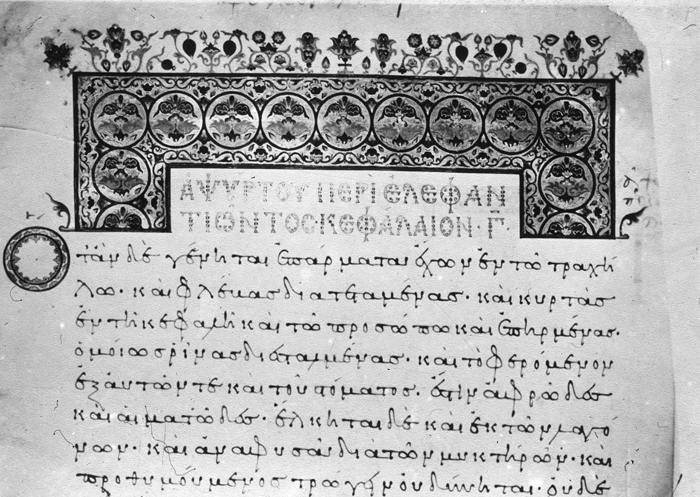 ΑΨΥΡΤΟΥ ΠΕΡΙ ΕΛΕΦΑΝ
ΤΙΩΝΤΟΣ ΚΕΦΑΛΑΙΟΝ· Γ̄·
Ὅταν δὲ γένηται ἐπάρματα ἔχων ἐν τῷ τραχή
λω· καὶ φλέβας διατεταμένας· καὶ κυρτὰς
ἐν τῇ κεφαλῇ καὶ τῷ προσώπω καὶ ἐπηρμένας·
ὁμοίως ρίνας διεσταλμένας· καὶ τὸ φερόμενον
ἐξ αὐτῶν τε καὶ τοῦ στόματος· ἐστὶν ἀφρῶδες
καὶ αἱματῶδες· ἕλκηται δὲ καὶ ἐκ τῶν λαγό
νων· καὶ ἀναφυσᾶν διὰ τῶν μυκτήρων· καὶ
προθυμούμενος τρώγειν οὐ δύνηται· οὐδὲ